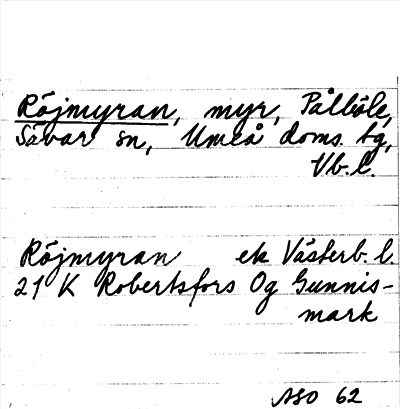 Röjmyran, myr, Pålböle,
Sävar sn, Umeå doms. tg,
Vb. l.
Röjmyran ek Västerb. l.
21 K Robertsfors Og Gunnis-
mark
ASO 62